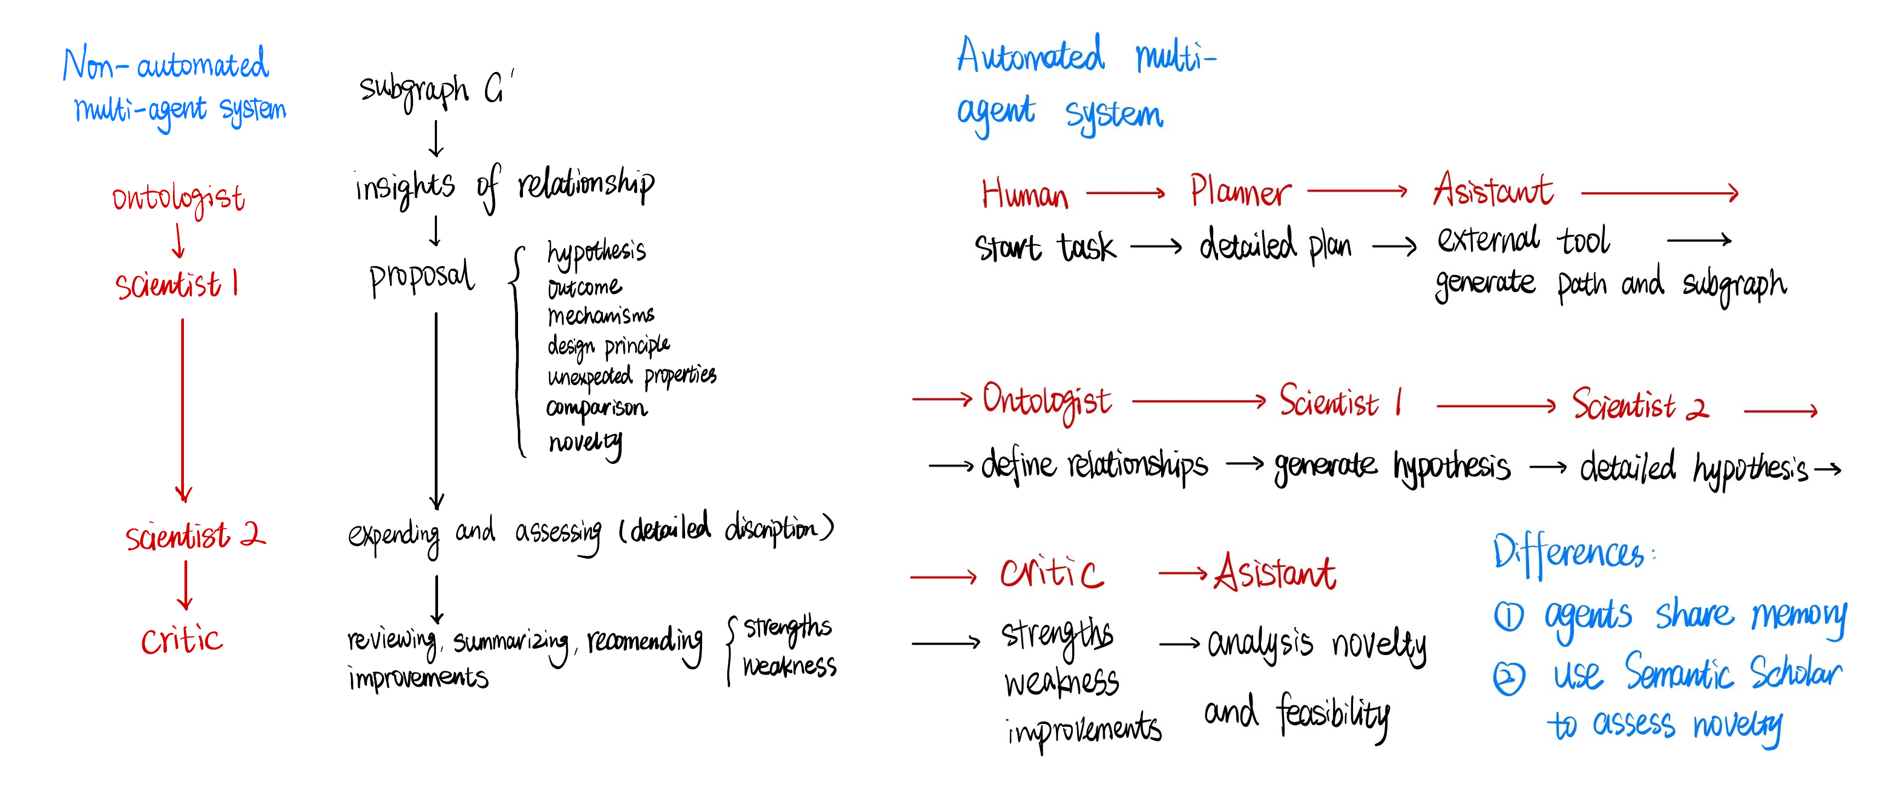 Non-automated
multi-agent system
subgraph G'
ontologist
insights of relationship
scientist 1
proposal
hypothesis
outcome
mechanisms
design principle
unexpected properties
comparison
novelty
scientist 2
expending and assessing (detailed discription)
critic
reviewing, summarizing, recomending
improvements
strengths
weakness
Automated multi-
agent system
Human → Planner → Asistant →
start task → detailed plan → external tool →
generate path and subgraph
→ Ontologist → Scientist 1 → Scientist 2 →
→ define relationships → generate hypothesis → detailed hypothesis →
→ critic → Asistant
→ strengths → analysis novelty
weakness and feasibility
improvements
Differences:
① agents share memory
② use Semantic Scholar
to assess novelty